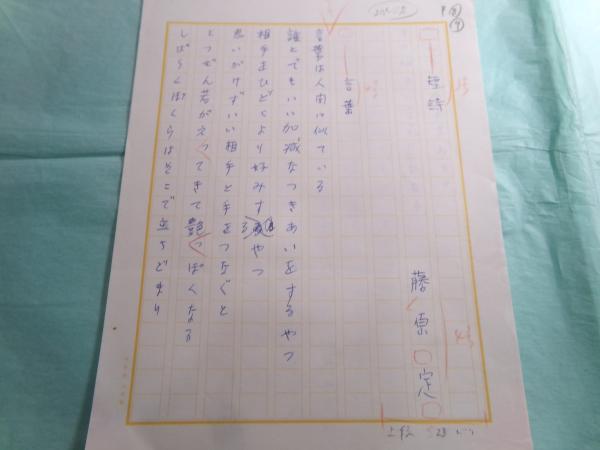 短詩
藤原定
言葉
言葉は人間に似ている
誰とでもいい加減なつきあいをするやつ
相手をひどくより好みするやつ
思いがけずいい相手と手をつなぐと
とつぜん若がえってきて艶っぽくなる
しばらくぼくらはそこで立ちどまり